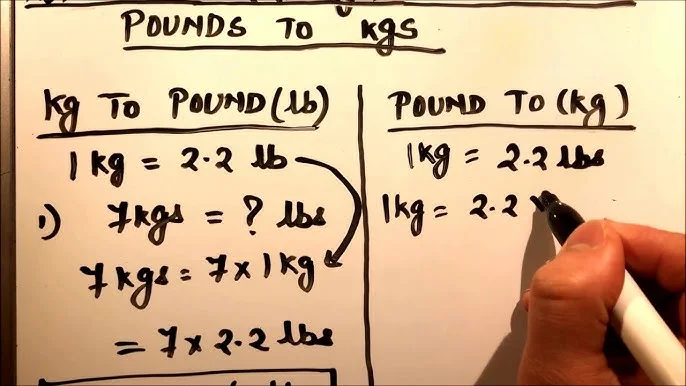 POUNDS TO KgS
Kg TO POUND (lb)
1 kg = 2.2 lb
1) 7kgs = ? lbs
7kgs = 7 x 1 kg
= 7 x 2.2 lbs
POUND TO (kg)
1kg = 2.2 lbs
1kg = 2.2